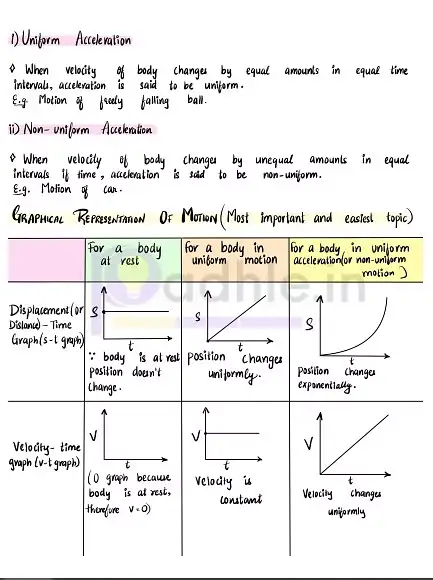 i) Uniform Acceleration
◊ When velocity of body changes by equal amounts in equal time
intervals, acceleration is said to be uniform.
E.g. Motion of freely falling ball.
ii) Non-uniform Acceleration
◊ When velocity of body changes by unequal amounts in equal
intervals if time, acceleration is said to be non-uniform.
E.g. Motion of car.
GRAPHICAL REPRESENTATION OF MOTION (Most important and easiest topic)
For a body
at rest
For a body in
uniform motion
For a body in uniform
acceleration (or non-uniform
motion)
padhle.in
Displacement (or
Distance) - Time
Graph (s-t graph)
S
t
∵ body is at rest
position doesn't
change.
S
t
position changes
uniformly.
S
t
position changes
exponentially.
Velocity - time
graph (v-t graph)
V
t
(0 graph because
body is at rest,
therefore v=0)
V
t
velocity is
constant
V
t
Velocity changes
uniformly